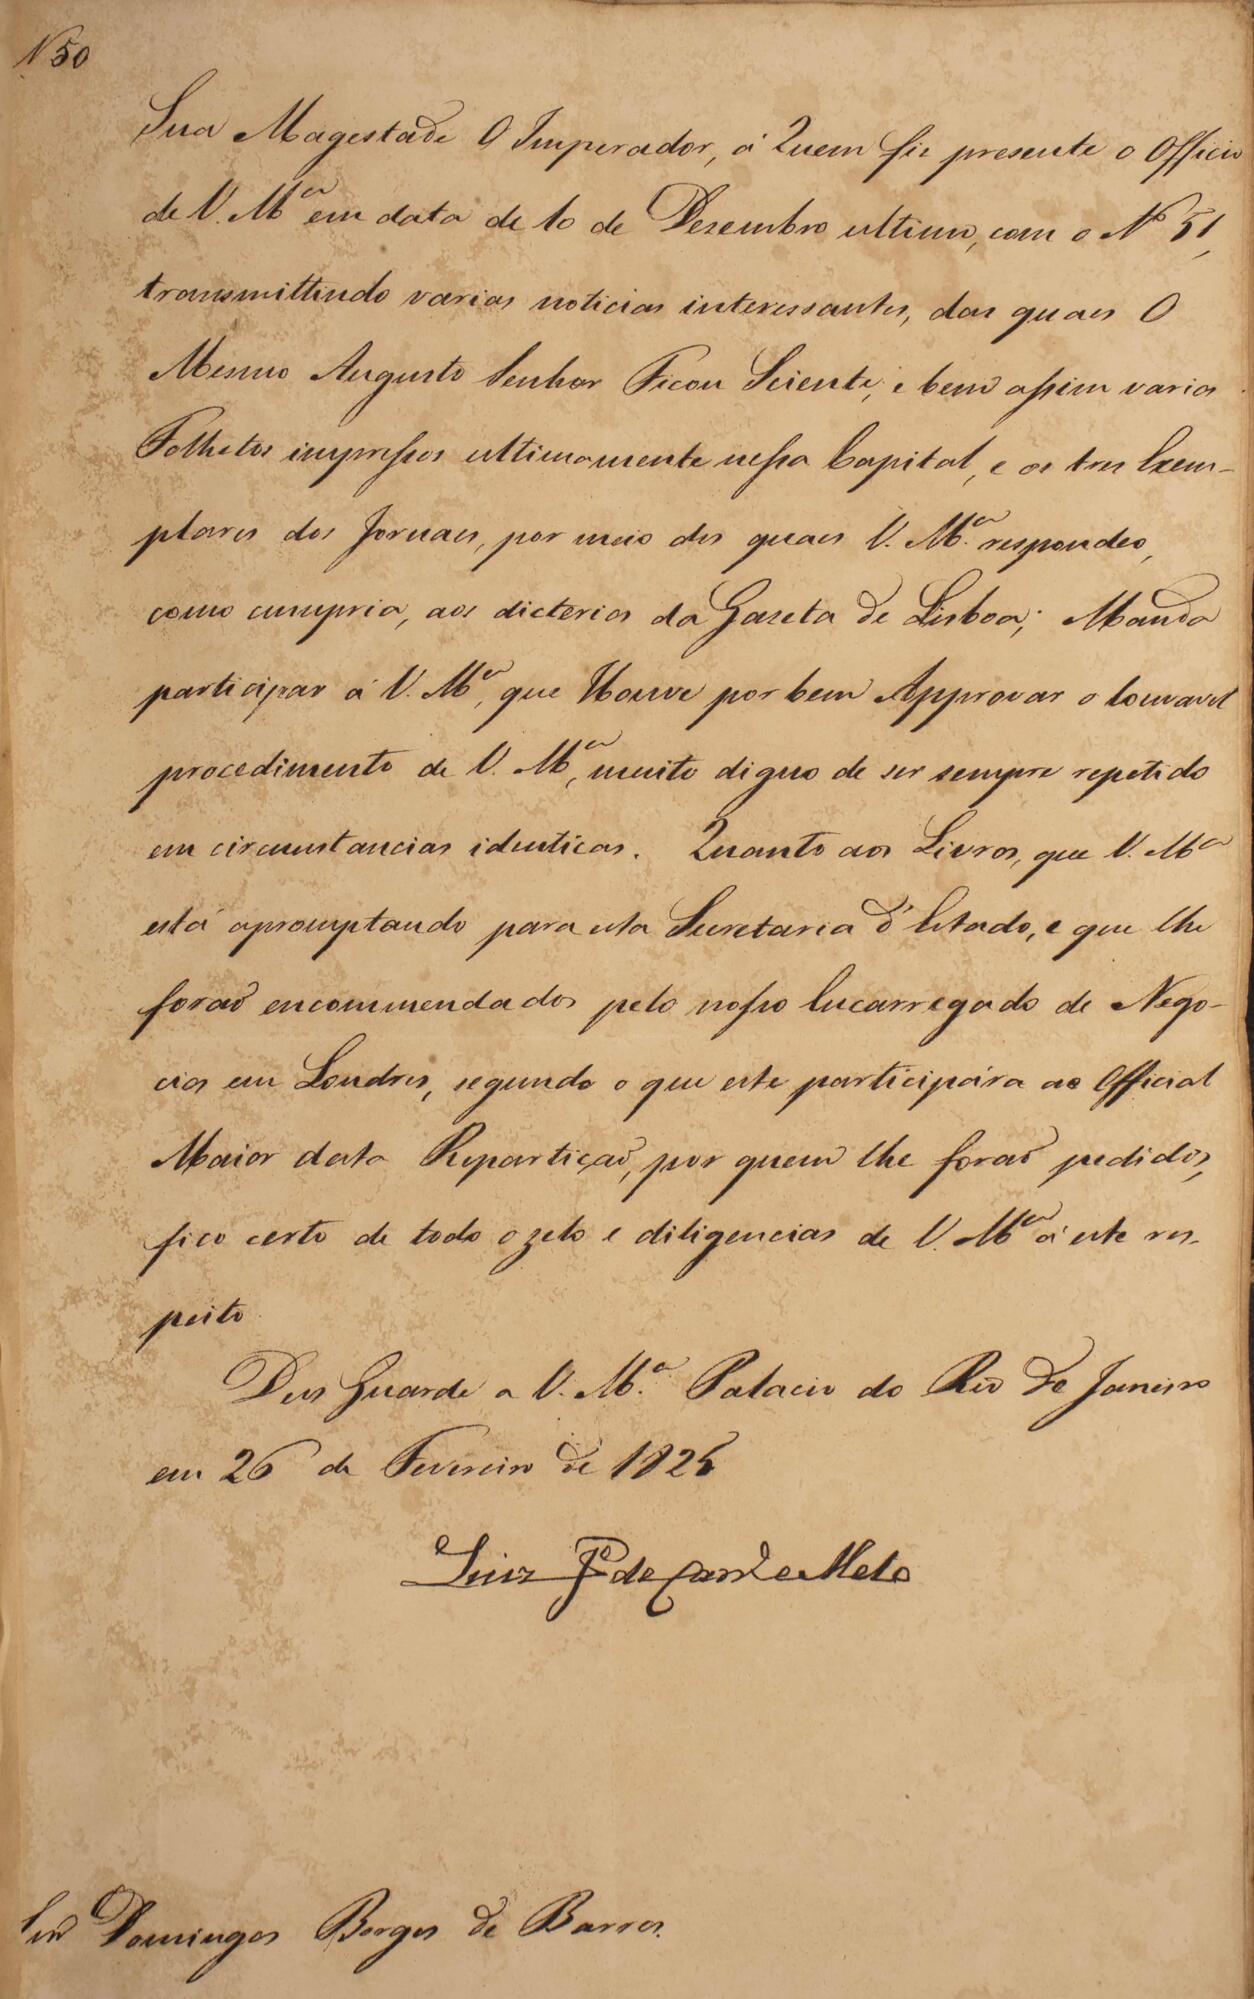 N 50
Sua Magestade O Imperador, á Quem fiz presente o Officio
de V. M.ce em data de 10 de Dezembro ultimo, com o Nº 51,
transmittindo varias noticias interessantes, das quaes O
Mesmo Augusto Senhor Ficou Sciente; e bem assim varios
Folhetos impressos ultimamente nessa Capital, e os tres Exem-
plares dos Jornaes, por meio dos quaes V. M.ce respondeo,
como cumpria, aos dicterios da Gazeta de Lisboa; Manda
participar á V. M.ce, que Houve por bem Approvar o louvavel
procedimento de V. M.ce, muito digno de ser sempre repetido
em circumstancias identicas. Quanto aos Livros, que V. M.ce
está apromptando para esta Secretaria d'Estado, e que lhe
foraõ encommendados pelo nosso Encarregado de Nego-
cios em Londres, segundo o que este participára ao Official
Maior desta Repartiçaõ, por quem lhe foraõ pedidos,
fico certo de todo o zelo e diligencias de V. M.ce á este res-
peito
Deus Guarde a V. M.ce Palacio do Rio de Janeiro
em 26 de Fevereiro de 1825
Luiz Jº de Carvº e Mello
Senr Domingos Borges de Barros.